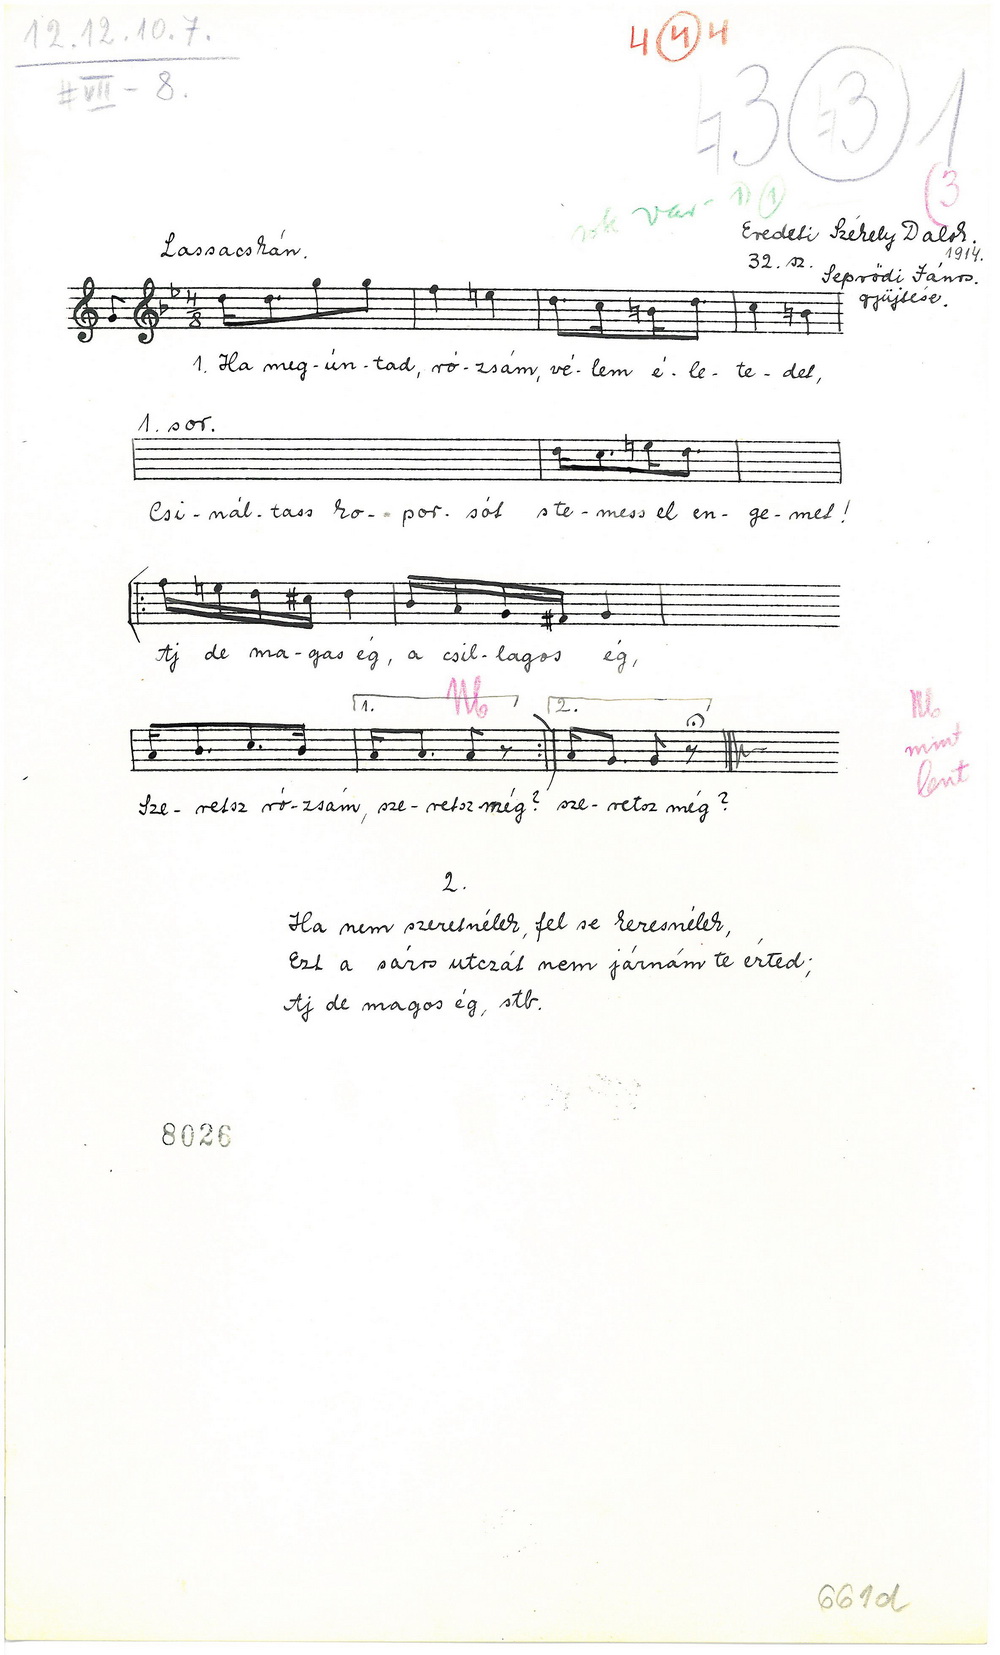 12.12.10.7.
# VII - 8.
4 (4) 4
♮3 (♮3) 1
(3
var- 1) (1)
Lassacskán.
Eredeti Székely Dalok.
1914.
32. sz.
Seprődi János
gyüjtése.
4/8
1. Ha meg-ún-tad, ró-zsám, vé-lem é-le-te-det,
1. sor.
Csi-nál-tass ko-por-sót stemess el en-ge-met!
Aj de ma-gas ég, a csil-lagos ég,
1. 2.
Sze-retsz ró-zsám, sze-retsz még? sze-retsz még?
mint
fent
2.
Ha nem szeretnélek, fel se keresnélek,
Ezt a sáros utczát nem járnám te érted;
Aj de magos ég, stb.
8026
661d